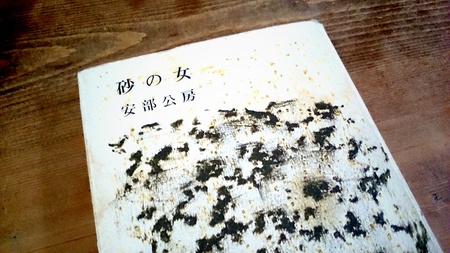 砂の女
安部公房